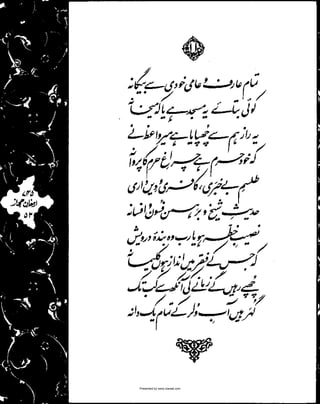 ۱۱
تمام عارف و عامی خودی سے بیگانہ
کوئی بتائے یہ مسجد ہے یا کہ میخانہ
یہ راز ہم سے چھپایا ہے میر واعظ نے
کہ خود حرم ہے چراغِ حرم کا پروانہ
طلسمِ بے خبری، کافری و دیں داری
حدیثِ شیخ و برہمن فسون و افسانہ
نصیبِ خطہ ہو یا رب وہ بندۂ درویش
کہ جس کے فقر میں انداز ہوں کلیمانہ
چھپے رہیں گے زمانے کی آنکھ سے کب تک
گہر ہیں آبِ وُلر کے تمام یک دانہ
۷۴۵
ارمغانِ حجاز
۵۳
Presented by www.ziaraat.com